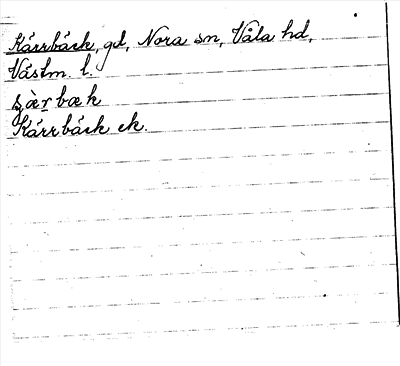 Kärrbäck, gd, Nora sn, Våla hd,
Västm. l.
ɕàr bæk
Kärrbäck ek.